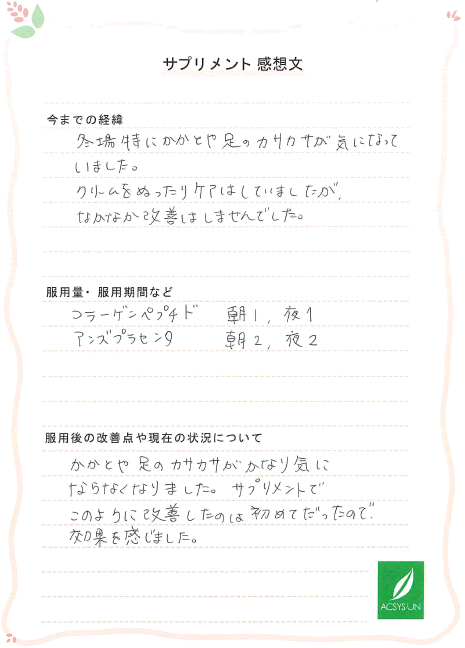 サプリメント 感想文
今までの経緯
冬場特にかかとや足のカサカサが気になって
いました。
クリームをぬったりケアはしていましたが、
なかなか改善はしませんでした。
服用量・服用期間など
コラーゲンペプチド 朝1, 夜1
アンズプラセンタ 朝2, 夜2
服用後の改善点や現在の状況について
かかとや足のカサカサがかなり気に
ならなくなりました。サプリメントで
このように改善したのは初めてだったので
効果を感じました。
ACSYSUN